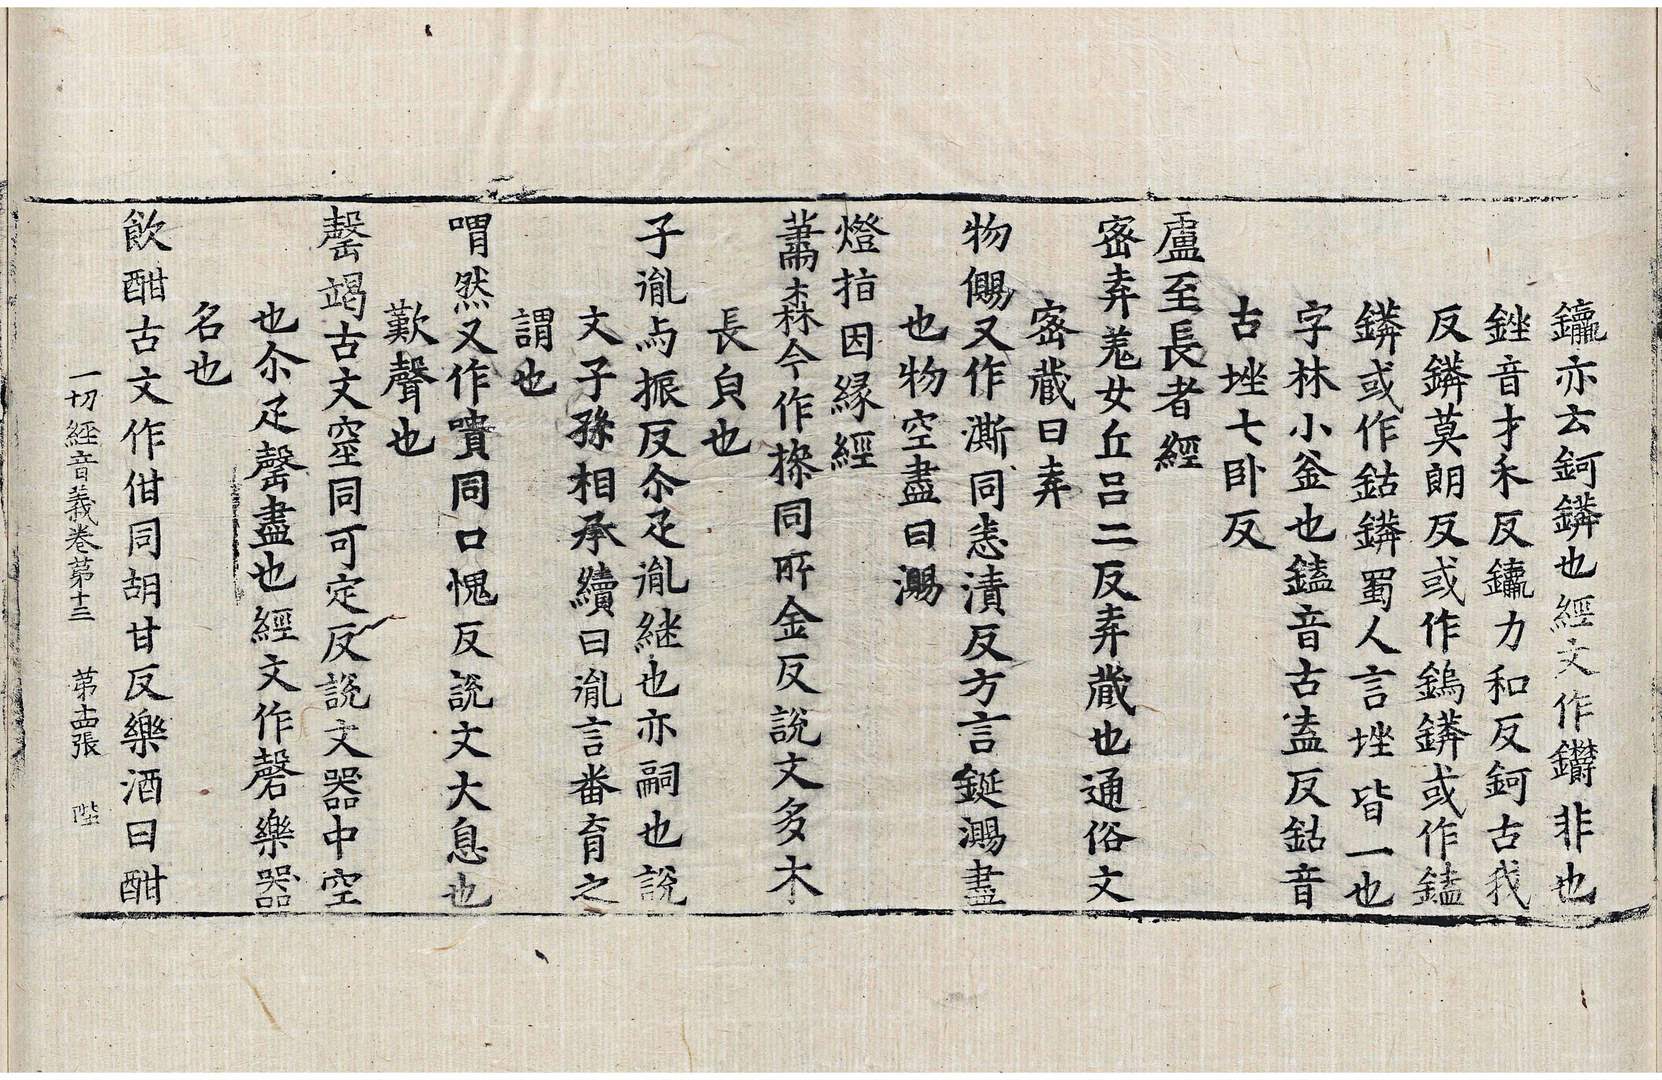 鑹亦云鈳𨯳也經文作鑽非也
銼音才禾反鑹力和反鈳古我
反𨯳莫朗反或作鎢𨯳或作鎑
𨯳或作鈷𨯳蜀人言㘸皆一也
字林小釜也鎑音古盍反鈷音
古㘸七卧反
盧至長者經
密弆羗女丘吕二反弆蔵也通俗文
密蔵曰弆
物儩又作澌同悉漬反方言鋋賜盡
也物空盡曰賜
燈指因縁經
萷森今作椮同所金反說文多木
長皃也
子胤与振反尒疋胤継也亦嗣也說
文子孫相承續曰胤言番育之
謂也
喟然又作嘳同口愧反說文大息也
歎聲也
罄竭古文窒同可定反說文器中空
也尒疋罄盡也經文作磬樂器
名也
飲酣古文作佄同胡甘反樂酒曰酣
一切經音義卷第十三 第十四張 陛